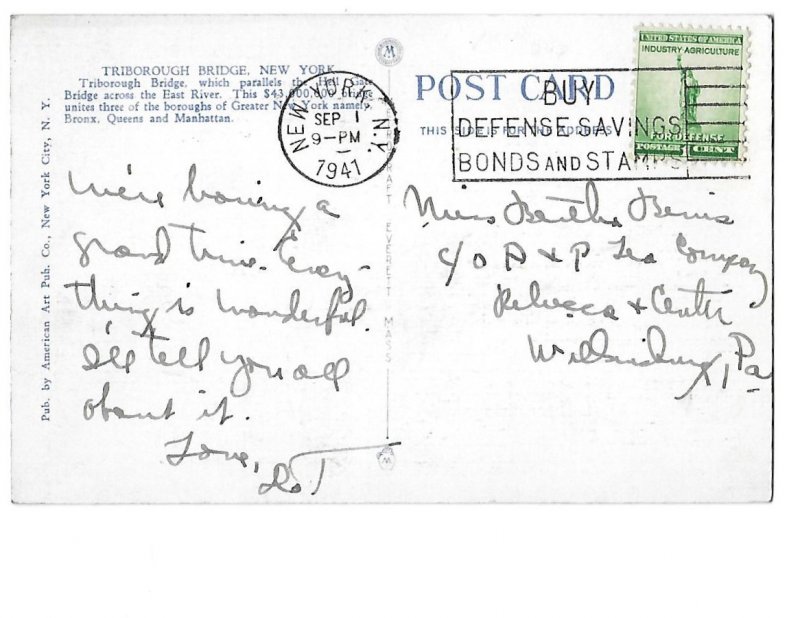 TRIBOROUGH BRIDGE, NEW YORK
Triborough Bridge, which parallels the Hell Gate
Bridge across the East River. This $43,000,000 bridge
unites three of the boroughs of Greater New York namely
Bronx, Queens and Manhattan.
Pub. by American Art Pub. Co., New York City, N. Y.
We're having a
grand time. Every-
thing is wonderful.
I'll tell you all
about it.
Love,
Dot
EVERETT MASS.
NEW YORK, N.Y.
SEP 1
9-PM
1941
POST CARD
THIS SIDE IS FOR THE ADDRESS
BUY
DEFENSE SAVINGS
BONDS AND STAMPS
UNITED STATES OF AMERICA
INDUSTRY AGRICULTURE
FOR DEFENSE
POSTAGE 1 CENT
Miss Bertha Bemis
c/o A & P Tea Company
Rebecca & Center
Wilkinsburg, Pa